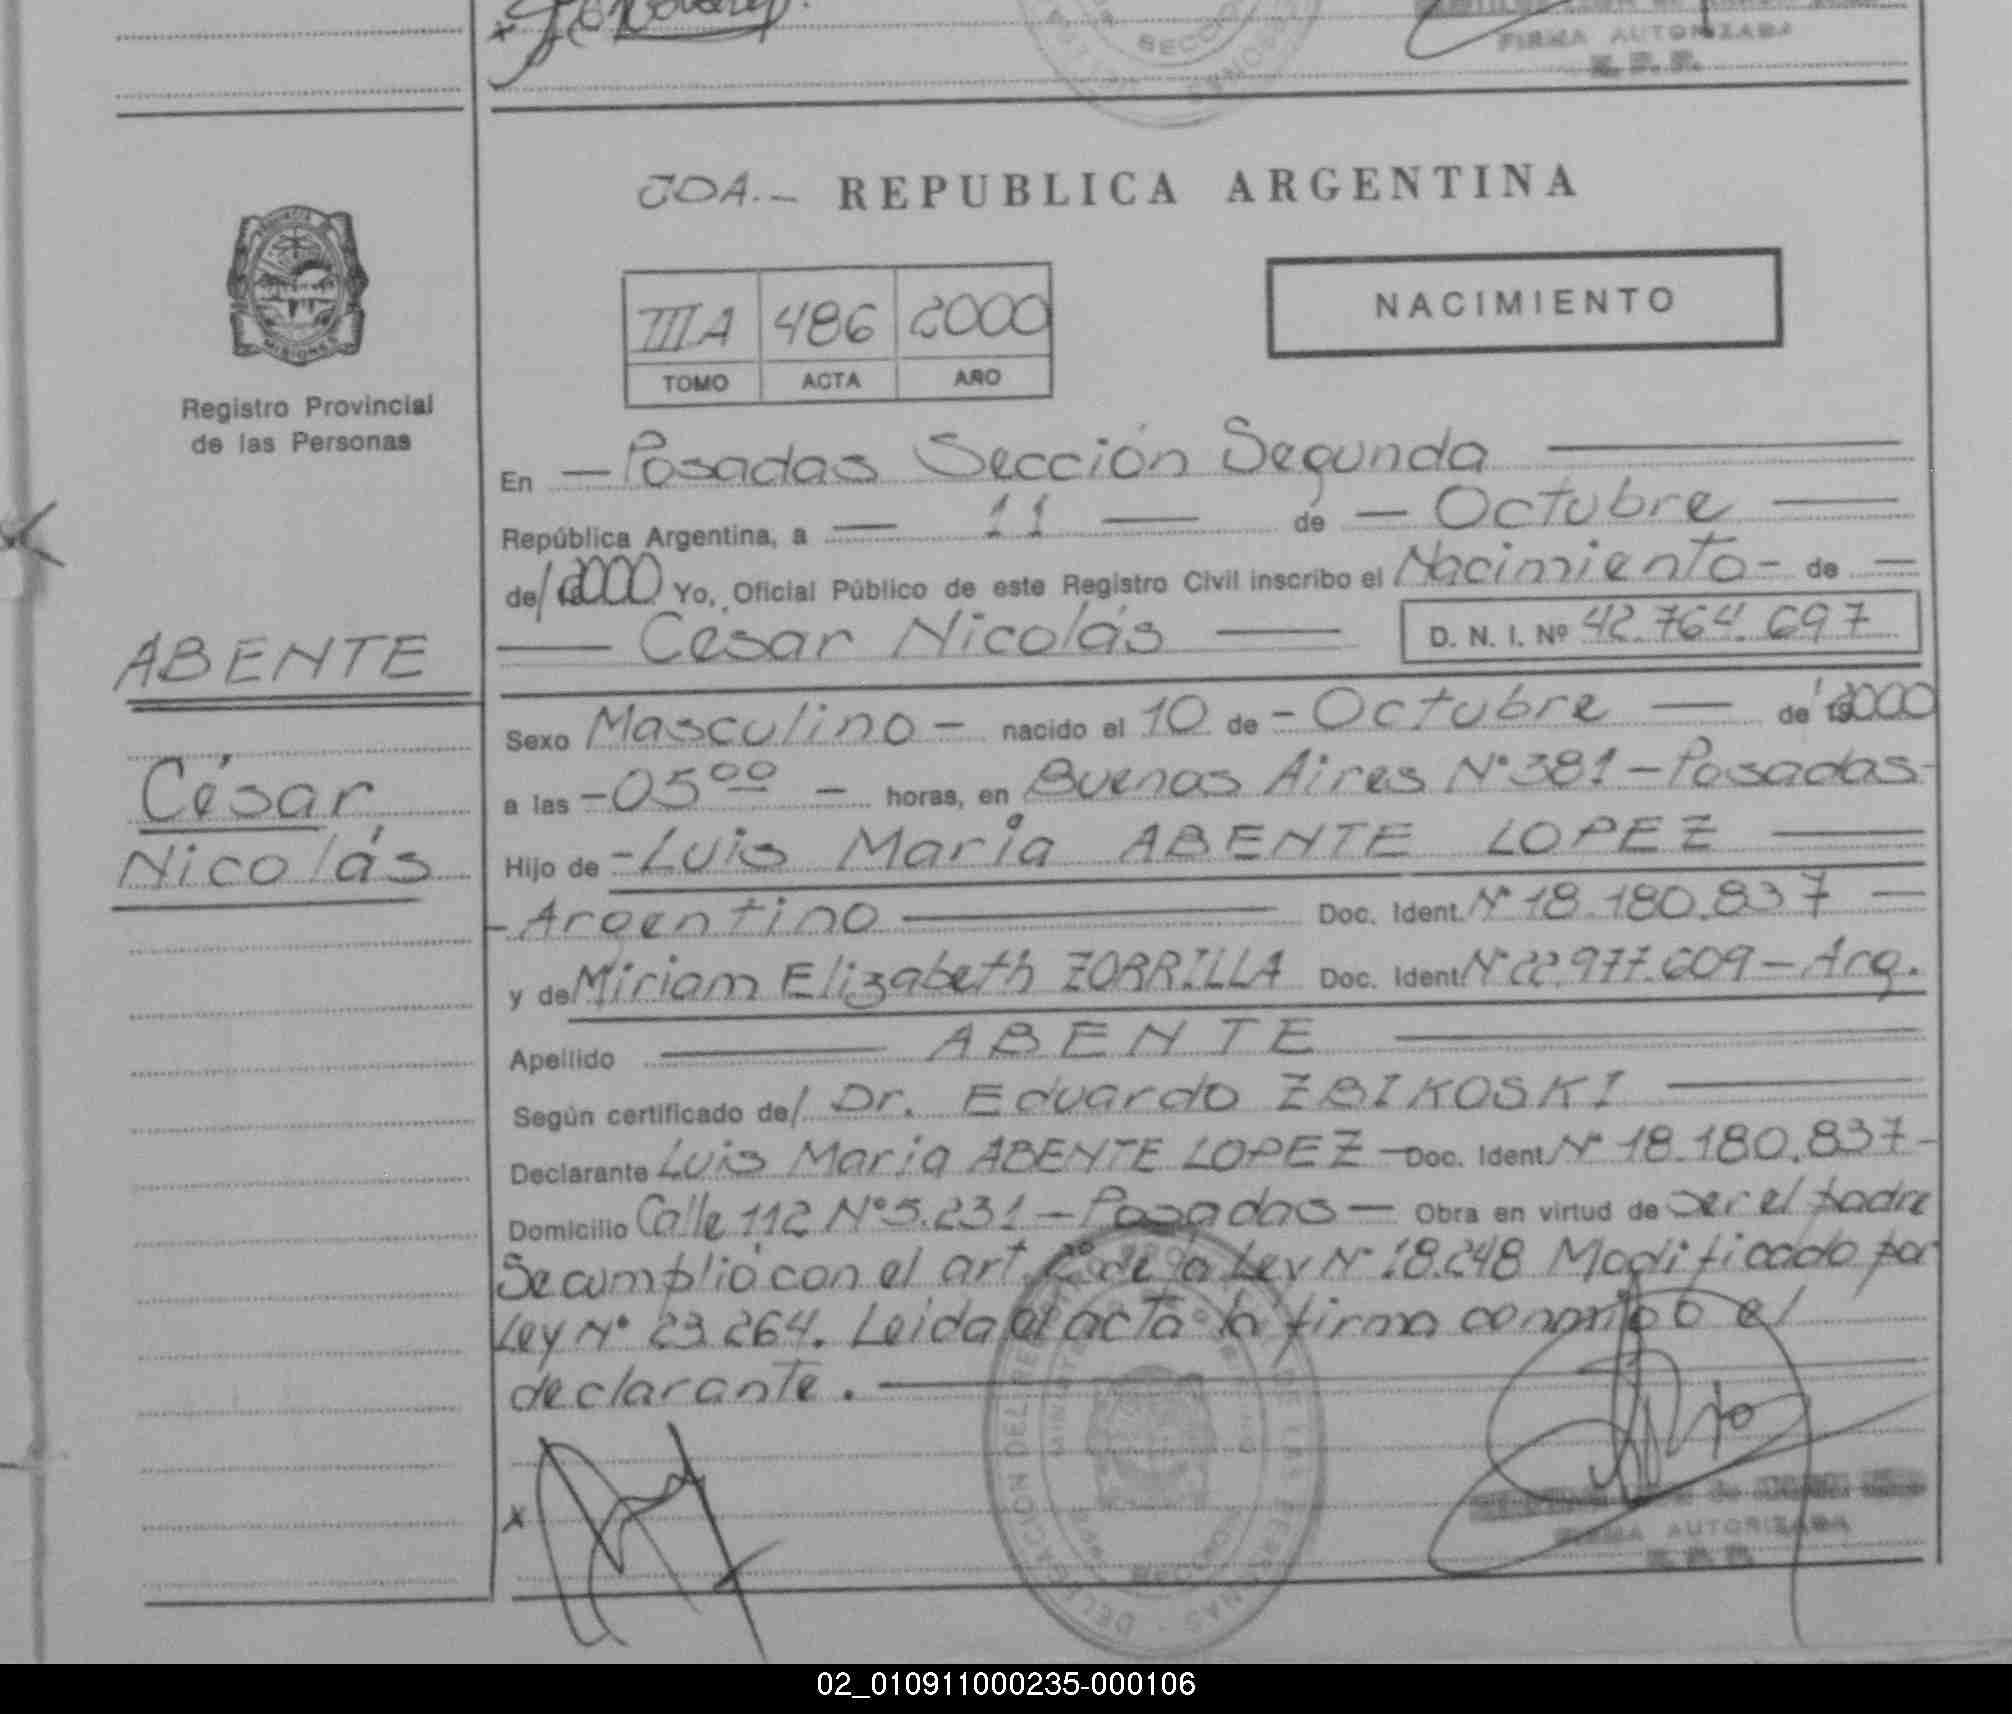 SECCIO
FIRMA AUTORIZADA
R. P. P.
JOA.- REPUBLICA ARGENTINA
MISIONES
Registro Provincial
de las Personas
IIIA 486 2000
TOMO ACTA AÑO
NACIMIENTO
En — Posadas Sección Segunda —
República Argentina, a — 11 — de — Octubre —
de/ 2000 Yo, Oficial Público de este Registro Civil inscribo el Nacimiento - de —
— César Nicolás — D. N. I. Nº 42.764.697
ABENTE
César
Nicolás
Sexo Masculino - nacido el 10 de - Octubre — de 2000
a las - 05 00 - horas, en Buenos Aires Nº 381 - Posadas -
Hijo de - Luis María ABENTE LOPEZ —
- Argentino — Doc. Ident. Nº 18.180.837 —
y de Miriam Elizabeth ZORRILLA Doc. Ident. Nº 22.977.609 - Arg.
Apellido — ABENTE —
Según certificado de/ Dr. Eduardo ZBIKOSKI —
Declarante Luis María ABENTE LOPEZ - Doc. Ident. Nº 18.180.837 -
Domicilio Calle 112 Nº 5.231 - Posadas - Obra en virtud de Ser el padre
Se cumplió con el art. 2º de la Ley Nº 18.248 Modificado por
Ley Nº 23.264. Leida el acta la firma conmigo el
declarante. —
x
FIRMA AUTORIZADA
02_010911000235-000106